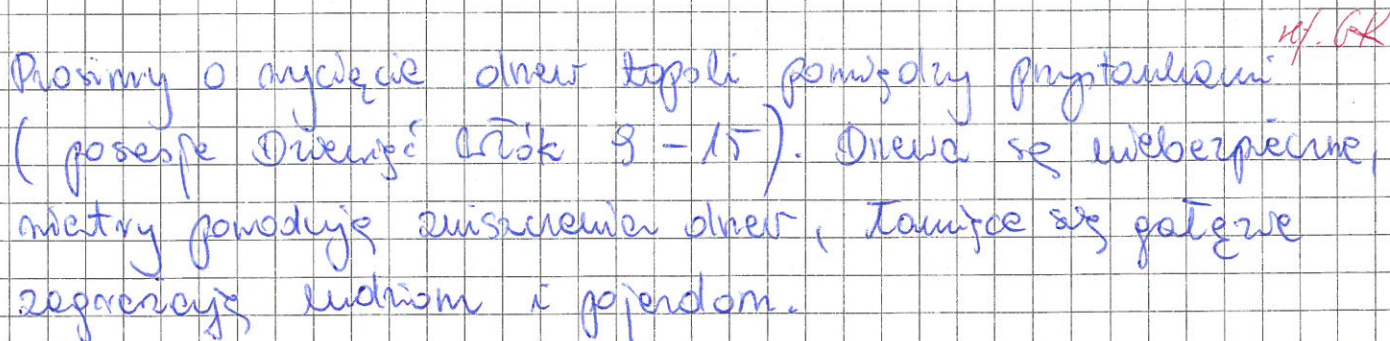 ref. GK
Prosimy o wycięcie drzew topoli pomiędzy przystankami
(posesje Dziewięć Włók 9 - 15). Drzewa są niebezpieczne,
wiatry powodują zniszczenia drzew, łamiące się gałęzie
zagrażają ludziom i pojazdom.